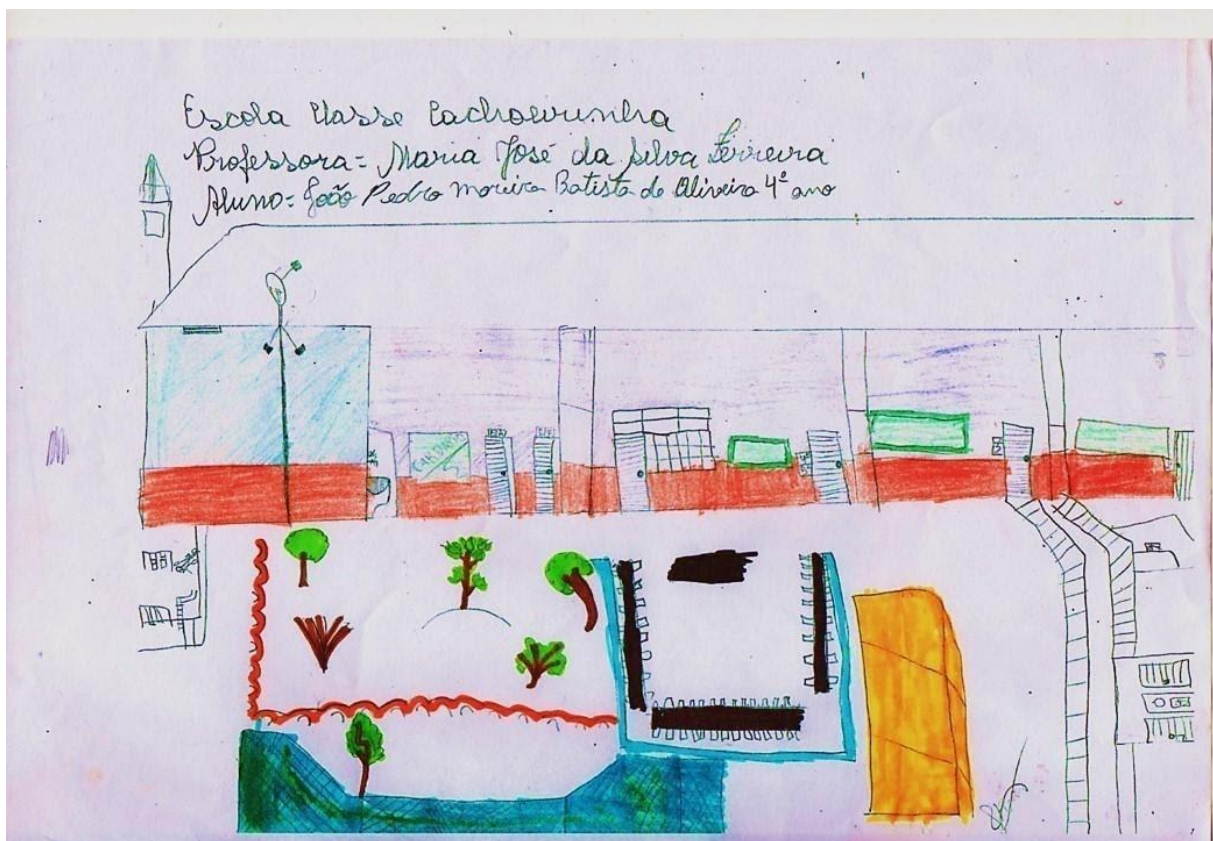 Escola Classe Cachoeirinha
Professora= Maria José da Silva Ferreira
Aluno= João Pedro Moreira Batista de Oliveira 4º ano